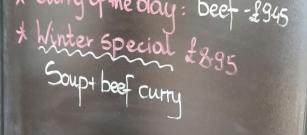 * Curry of the day: beef - £9.45
* Winter special £8.95
Soup + beef curry